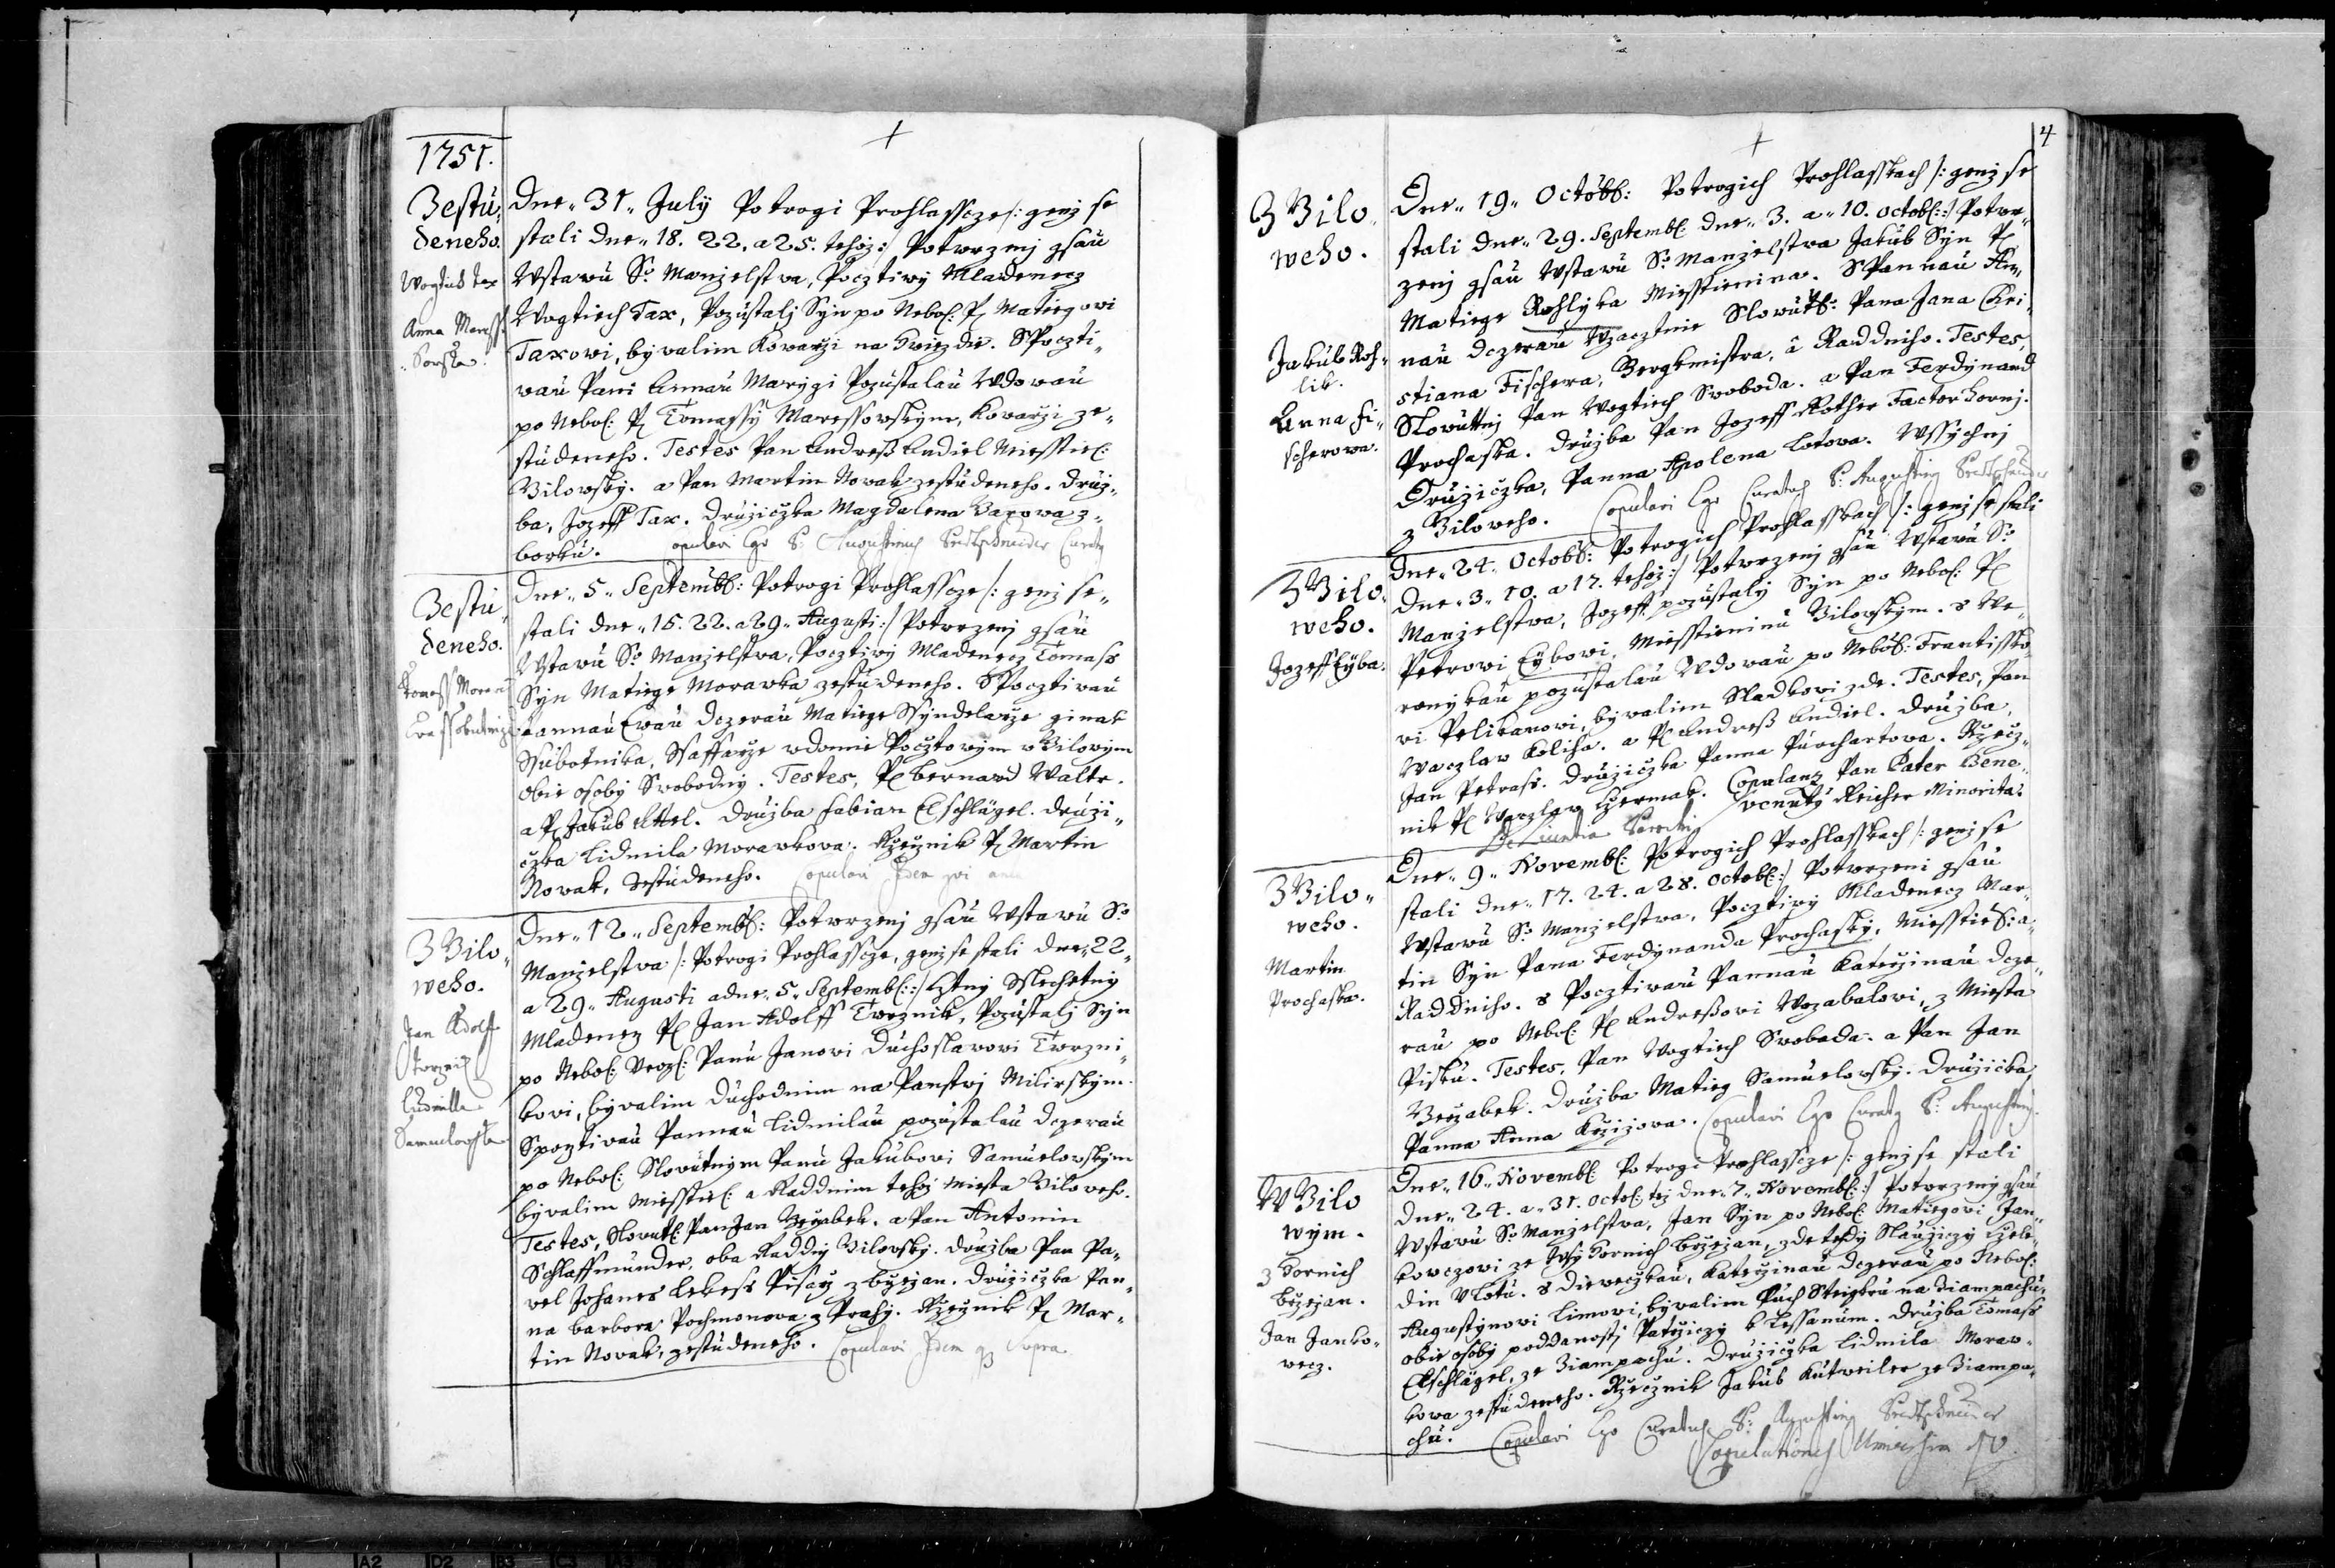 1751.
Zestu,
deneho.
Wogtich Tax
Anna Maress,
Dne 31 July Potrogi Prohlassze /: genz se
stali dne 18. 22. a 25. tehoz :/ Potwrzenj gsau
Wstawu S° Manzelstwa, Pocztiwy Mladenecz
Wogtiech Tax, Pozustalj Syn po Nebo: P. Matiegowi
Taxowi, bywalim Kowarzi na Hwiezdie. SPoczti,,
wau Pani Annau Marygi Pozustalau Wdowau
po Nebo: P. Tomassy Maressowskym, Kowarzi ze,,
studeneho. Testes Pan Andreß Andiel Miesstie:
Bilowsky. a Pan Martin Nowak zestudeneho. Druz,,
ba, Jozeff Tax. Druziczka Magdalena Baxowa z,,
borku. Copulavi Ego P. Augustinus Curatus
Zestu,
deneho.
Tomass
Dne 5 Septembr: Potrogi Prohlassze /: genz se,,
stali dne 15. 22. a 29 Augusti :/ Potwrzenj gsau
Wstawu S° Manzelstwa, Pocztiwy Mladenecz Tomass
Syn Matiege Morawka zestudeneho. SPocztiwau
Pannau Ewau Dczerau Matiege Ssyndelarze ginak
Ssubotnika, Ssaffarze wdomie Pocztowym w Bilowym
obie osoby Swobodny. Testes, P. bernard Walte.
a P. Jakub Ettel. Druzba Fabian Elschlägel. Druzi,,
czka Lidmila Morawkowa. Rzecznik P. Martin
Nowak, Zestudeneho. Copulavi Idem qui ante
Z Bilo,,
weho.
Jan Adolf
Ludmilla
Samuelowska
Dne 12 Septembr: Potwrzenj gsau Wstawu S°
Manzelstwa /: Potrogi Prohlassze, genz se stali dne 22,,
a 29 Augusti a dne 5 Septembr: :/ Cztny Sslechetny
Mladenecz P. Jan Adolff Twrznik, Pozustalj Syn
po Nebo: Pana Janowi Duchoslawowi Twrzni,,
kowi, bywalim Duchodnim na Panstwj Miliwskym.
Spocztiwau Pannau Lidmilau pozustalau Dczerau
po Nebo: Slowutnym Panu Jakubowi Samuelowskym
bywalim Miesstie: a Raddnim tehoz Miesta Biloweho.
Testes, Slowut: Pan Jan Wrzabek. a Pan Antonin
Schlaffmunder, oba Raddny Bilowsky. Druzba Pan Pa,,
wel Johanes Lekess Pisarz z brzezan. Druziczka Pan,,
na barbora Pochmonowa z Prahy. Rzecznik P. Mar,,
tin Nowak, zestudeneho. Copulavi Idem qui Supra
4
Z Bilo,,
weho.
Jakub Roh,,
lik.
Anna Fi,,
scherowa.
Dne 19 Octobr: Potrogich Prohlasskach /: genz se
stali dne 29. Septembr: dne 3. a 10. octobr: :/ Potwr,,
zenj gsau Wstawu S° Manzelstwa Jakub Syn P.
Matiege Rohlyka Miesstienina. SPannau An,,
nau Dczerau Wzacztnie Slowut: Pana Jana Chri,,
stiana Fischera, Bergkmistra, a Raddniho. Testes,
Slowuttny Pan Wogtiech Swoboda. a Pan Ferdynand
Prochaska. Druzba Pan Jozeff Rother Factor hornj.
Druziczka, Panna Apolena Lotowa. Wssychnj
z Biloweho. Copulavi Ego Curatus P. Augustinus
Z Bilo,,
weho.
Jozeff Eyba.
Dne 24 Octobr: Potrogich Prohlasskach /: genz se stali
Dne 3. 10. a 17. tehoz :/ Potwrzenj gsau Wstawu S°
Manzelstwa, Jozeff pozustaly Syn po Nebo: P.
Petrowi Eybowi, Miesstieninu Bilowskym. s We,,
ronykau pozustalau Wdowau po Nebo: Frantissko,,
wi Pelikanowi, bywalim Sladkowi zde. Testes, Pan
Waczlaw Koliha. a P. Andreß Andiel. Druzba,
Jan Petrass. Druziczka Panna Purchartowa. Rzecz,,
nik P. Waczlaw Czermak. Copulans Pan Pater Bene,,
De Licentia Parochi venuty Reicher Minorita.
Z Bilo,,
weho.
Martin
Prochaska.
Dne 9 Novembr: Potrogich Prohlasskach /: genz se
stali dne 17. 24. a 28. Octobr: :/ Potwrzeni gsau
Wstawu S° Manzelstwa, Pocztiwy Mladenecz Mar,,
tin Syn Pana Ferdynanda Prochasky, Miesstie: a,,
Raddniho. s Pocztiwau Pannau Katerzinau Dcze,,
rau po Nebo: P. Andreßowi Wozabalowi, z Miesta
Pisku. Testes, Pan Wogtiech Swoboda. a Pan Jan
Wrzabek. Druzba Matieg Samuelowsky. Druziczka,
Panna Anna Krzizowa. Copulavi Ego Curatus P. Augustinus
W Bilo
wym.
z Hornich
brzezan.
Jan Janko,,
wecz.
Dne 16 Novembr: Potrogi Prohlassze /: genz se stali
Dne 24. a 31. Octo: tez dne 7 Novembr: :/ Potwrzeny gsau
Wstawu S° Manzelstwa, Jan Syn po Nebo: Matiegowi Jan,,
kowczowi ze Wsy Hornich brzezan, zde tehdy Slauziczy Czele,,
din V Lotu. s Dieweczkau, Katerzinau Dczerau po Nebo:
Augustynowi Limowi, bywalim Puch Steigeru na Ziampachu,
obie osoby poddanosti Patrziczy k Lessanum. Druzba Tomass
Elschlägel, ze Ziampachu. Druziczka Lidmila Moraw,,
kowa zestudeneho. Rzecznik Jakub Kutweiler ze Ziampa,,
chu. Copulavi Ego Curatus P. Augustinus
Copulationes